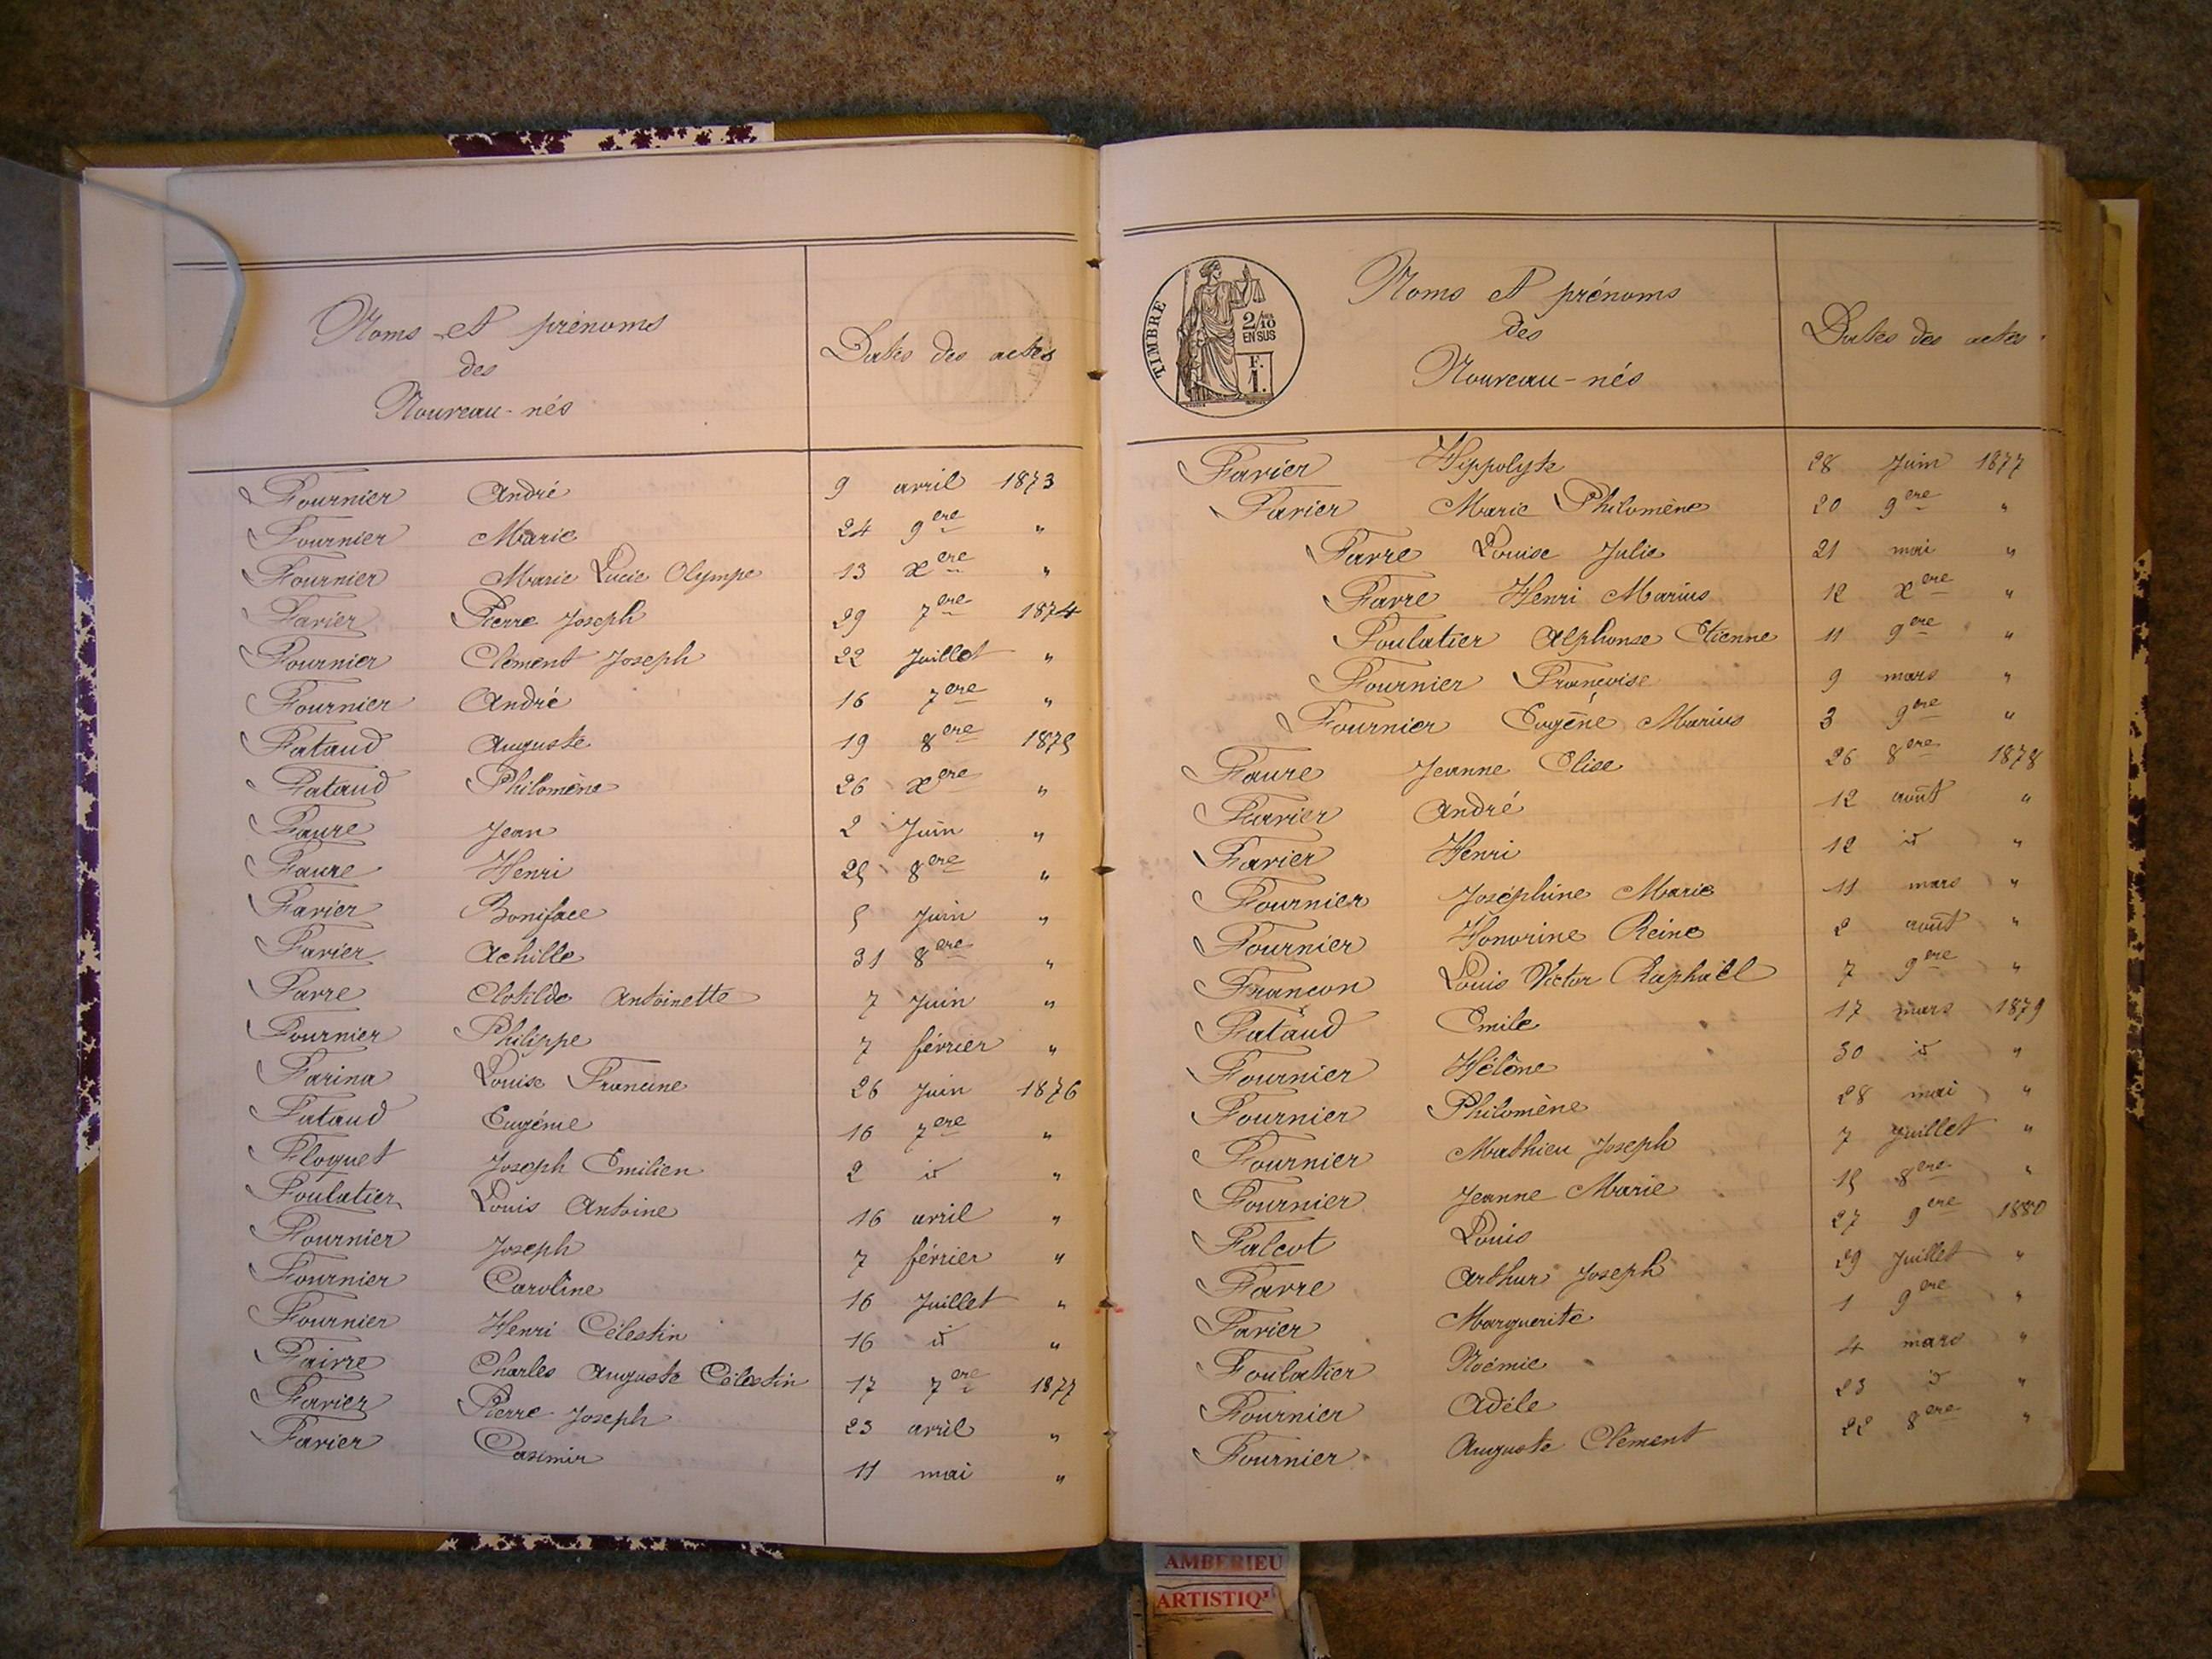 Noms et prénoms
des
Nouveau-nés
Dates des actes
Fournier André 9 avril 1873
Fournier Marie 24 9ere "
Fournier Marie Lucie Olympe 13 xere "
Favier Pierre Joseph 29 7ere 1874
Fournier Clément Joseph 22 Juillet "
Fournier André 16 7ere "
Fataud Auguste 19 8ere 1875
Fataud Philomène 26 xere "
Faure Jean 2 Juin "
Faure Henri 25 8ere "
Favier Boniface 5 Juin "
Favier Achille 31 8ere "
Favre Clotilde Antoinette 7 Juin "
Fournier Philippe 7 février "
Farina Louise Francine 26 Juin 1876
Fataud Eugénie 16 7ere "
Floquet Joseph Emilien 2 id "
Foulatier Louis Antoine 16 avril "
Fournier Joseph 7 février "
Fournier Caroline 16 Juillet "
Fournier Henri Célestin 16 id "
Faivre Charles Auguste Célestin 17 7ere 1877
Favier Pierre Joseph 23 avril "
Favier Casimir 11 mai "
TIMBRE
2/10
EN SUS
F.
1.
Noms et prénoms
des
Nouveau-nés
Dates des actes
Favier Hippolyte 28 Juin 1877
Favier Marie Philomène 20 9ere "
Favre Louise Julie 21 mai "
Favre Henri Marius 12 xere "
Foulatier Alphonse Etienne 11 9ere "
Fournier Françoise 9 mars "
Fournier Eugène Marius 3 9ere "
Faure Jeanne Elise 26 8ere 1878
Favier André 12 août "
Favier Henri 12 id "
Fournier Joséphine Marie 11 mars "
Fournier Honorine Reine 2 août "
Françon Louis Victor Raphaël 7 9ere "
Fataud Emile 17 mars 1879
Fournier Hélène 30 id "
Fournier Philomène 28 mai "
Fournier Mathieu Joseph 7 Juillet "
Fournier Jeanne Marie 15 8ere "
Falcot Louis 27 9ere 1880
Favre Arthur Joseph 29 Juillet "
Favier Marguerite 1 9ere "
Foulatier Noémie 4 mars "
Fournier Adèle 23 id "
Fournier Auguste Clément 22 8ere "
AMBERIEU
ARTISTIQ